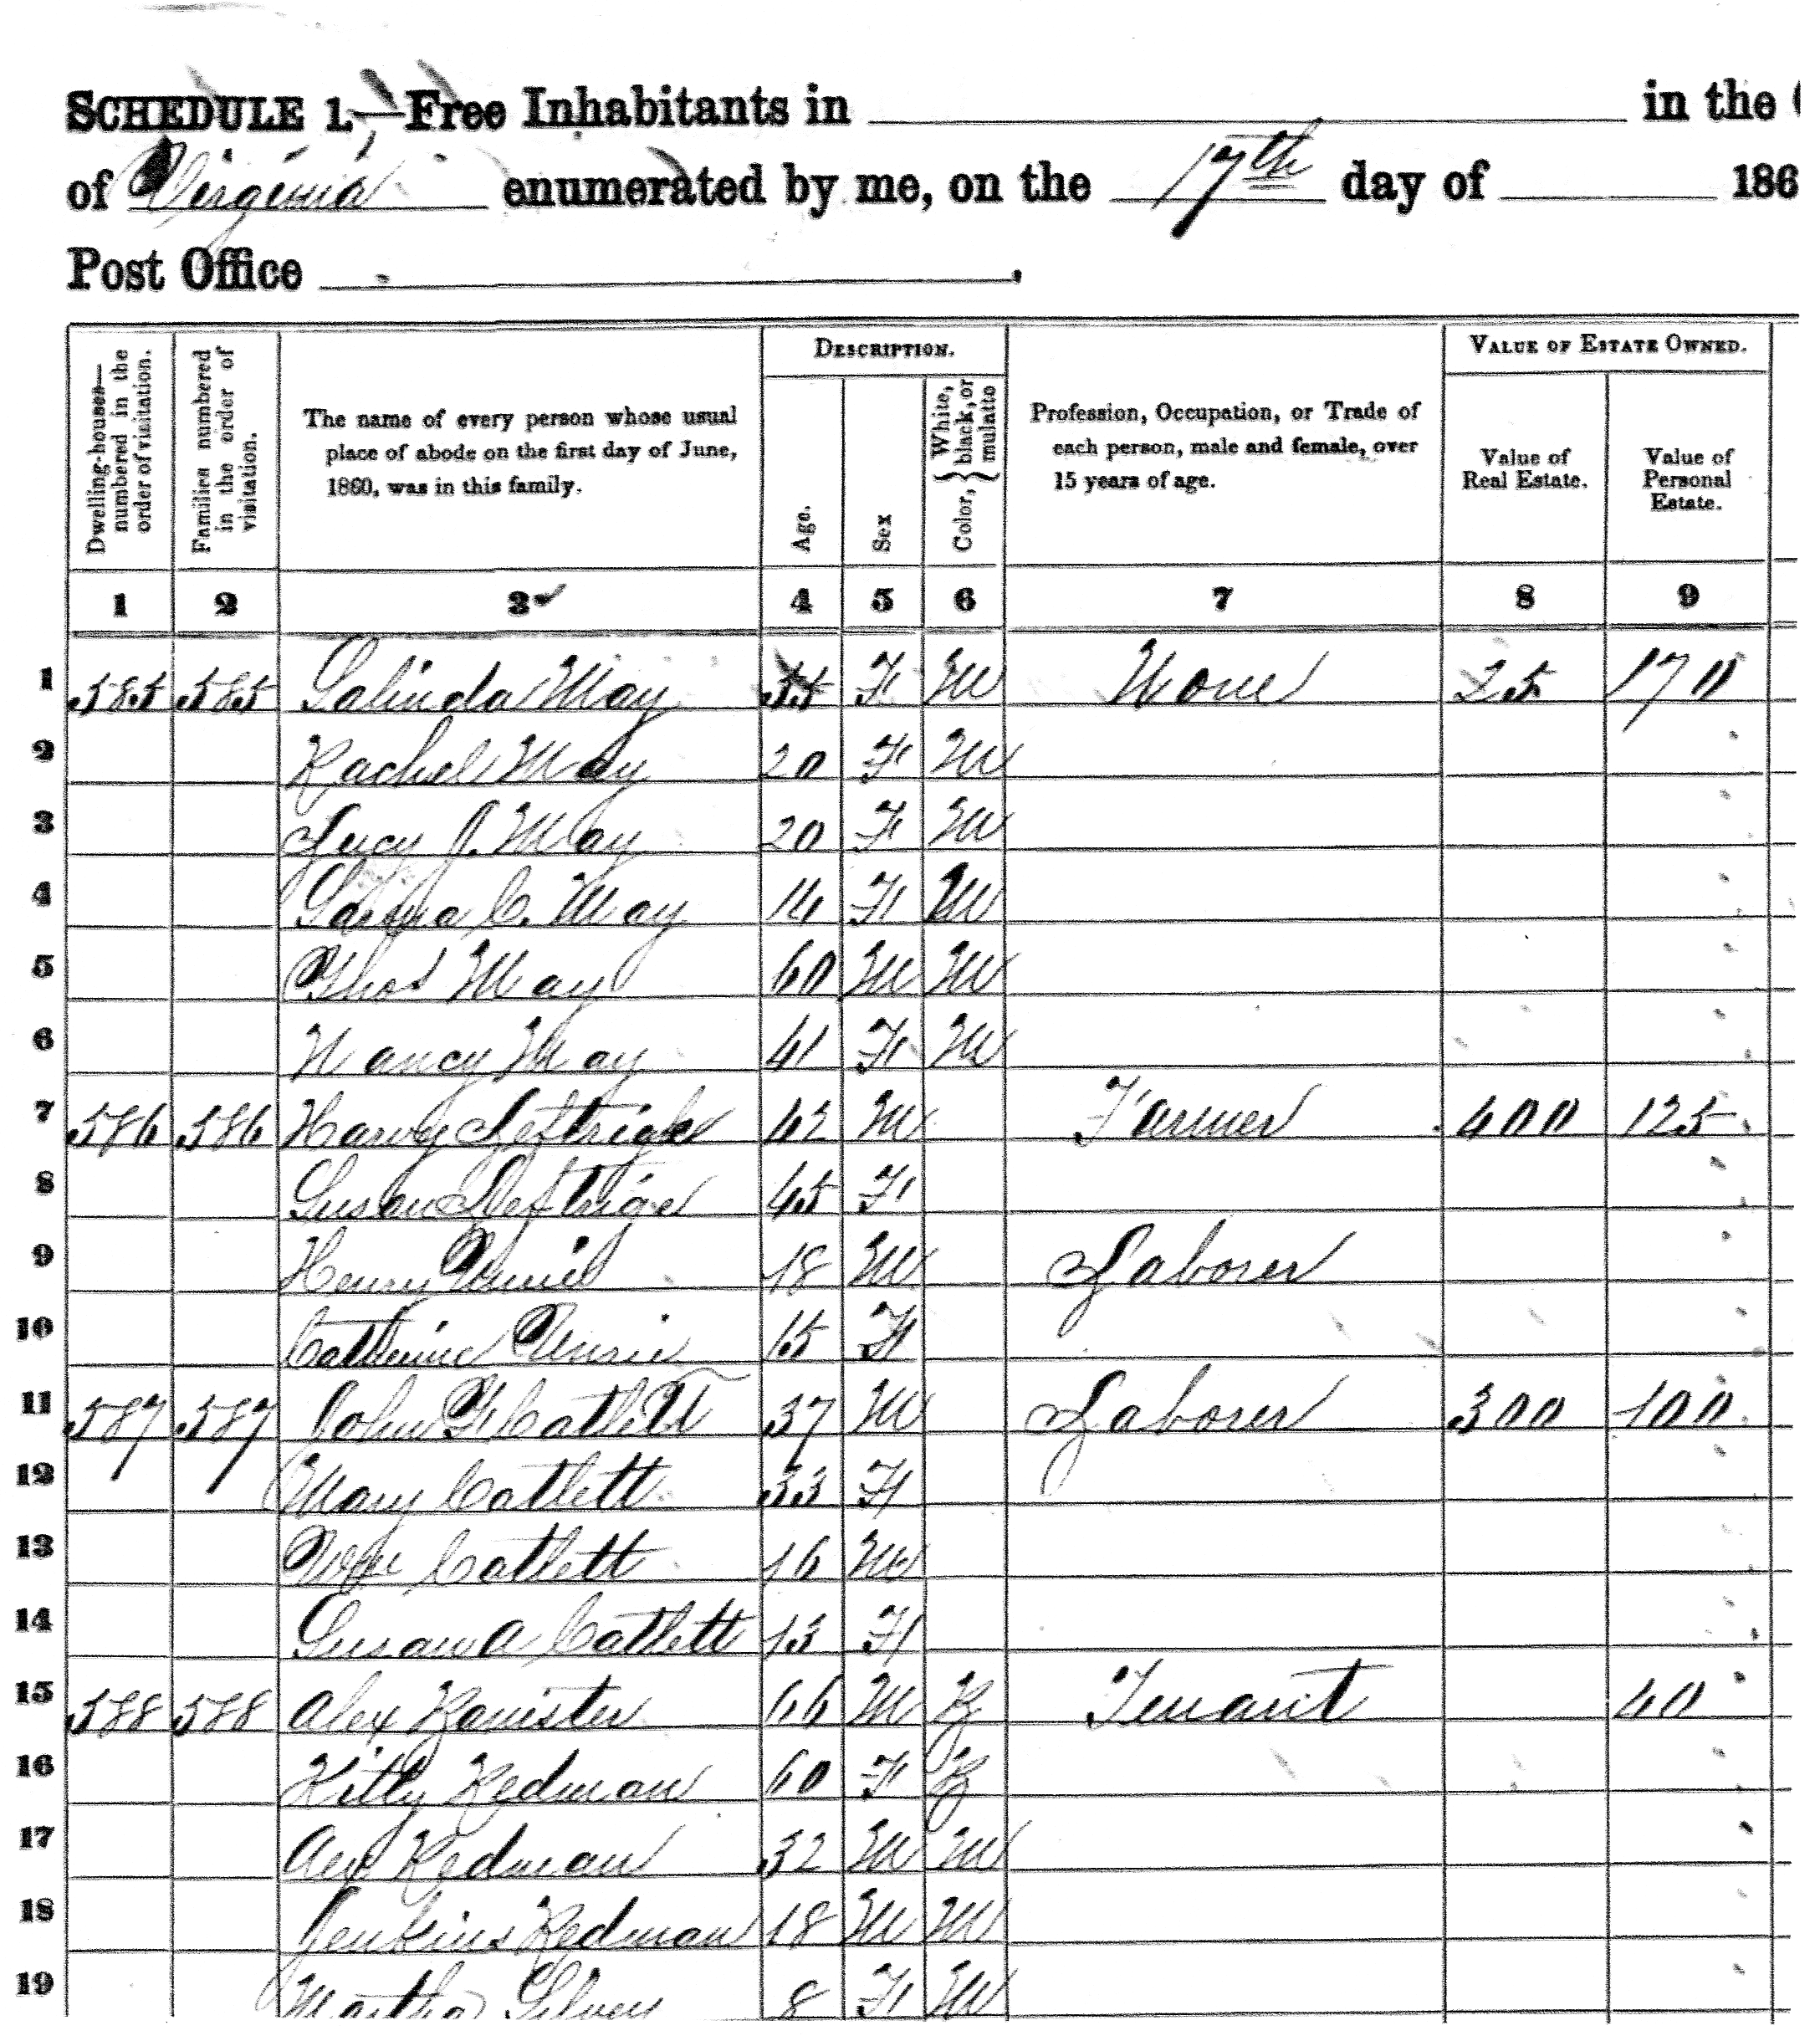 SCHEDULE 1.—Free Inhabitants in in the
of Virginia enumerated by me, on the 17th day of 186
Post Office .
Dwelling-houses—numbered in the order of visitation.
Families numbered in the order of visitation.
The name of every person whose usual place of abode on the first day of June, 1860, was in this family.
DESCRIPTION.
Age.
Sex
Color, { White, black, or mulatto
Profession, Occupation, or Trade of each person, male and female, over 15 years of age.
VALUE OF ESTATE OWNED.
Value of Real Estate.
Value of Personal Estate.
1 2 3 4 5 6 7 8 9
1 585 585 Salinda May 55 F M None 25 170
2 Rachel May 20 F M
3 Lucy J. May 20 F M
4 C. May 14 F M
5 Thos May 60 M M
6 Nancy May 41 F M
7 586 586 Harvy 42 M Farmer 400 125
8 Susan 45 F
9 Henry 18 M Laborer
10 Catherine 15 F
11 587 587 John Catlett 37 M Laborer 300 100
12 Mary Catlett 33 F
13 Wm Catlett 16 M
14 Susan A Catlett 13 F
15 588 588 Alex Banister 66 M B Tenant 40
16 Kitty Redman 60 F B
17 Redman 32 M M
18 Jenkins Redman 18 M M
19 Martha 8 F M